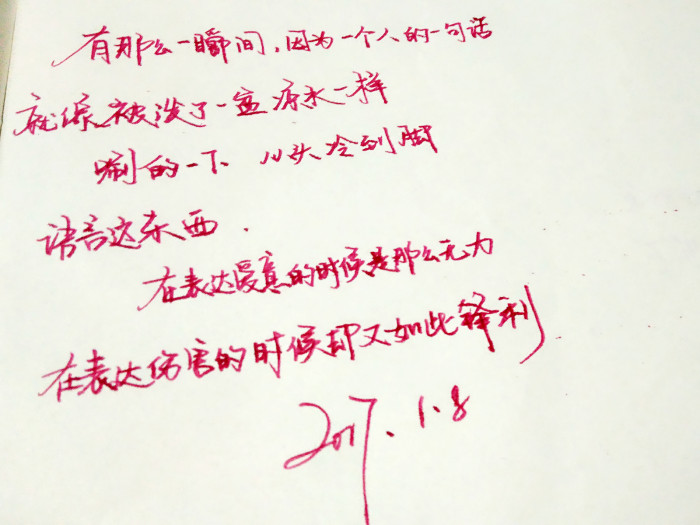 有那么一瞬间,因为一个人的一句话
就像被泼了一盆凉水一样
唰的一下 从头冷到脚
语言这东西.
在表达爱意的时候是那么无力
在表达伤害的时候却又如此锋利
2017.1.8